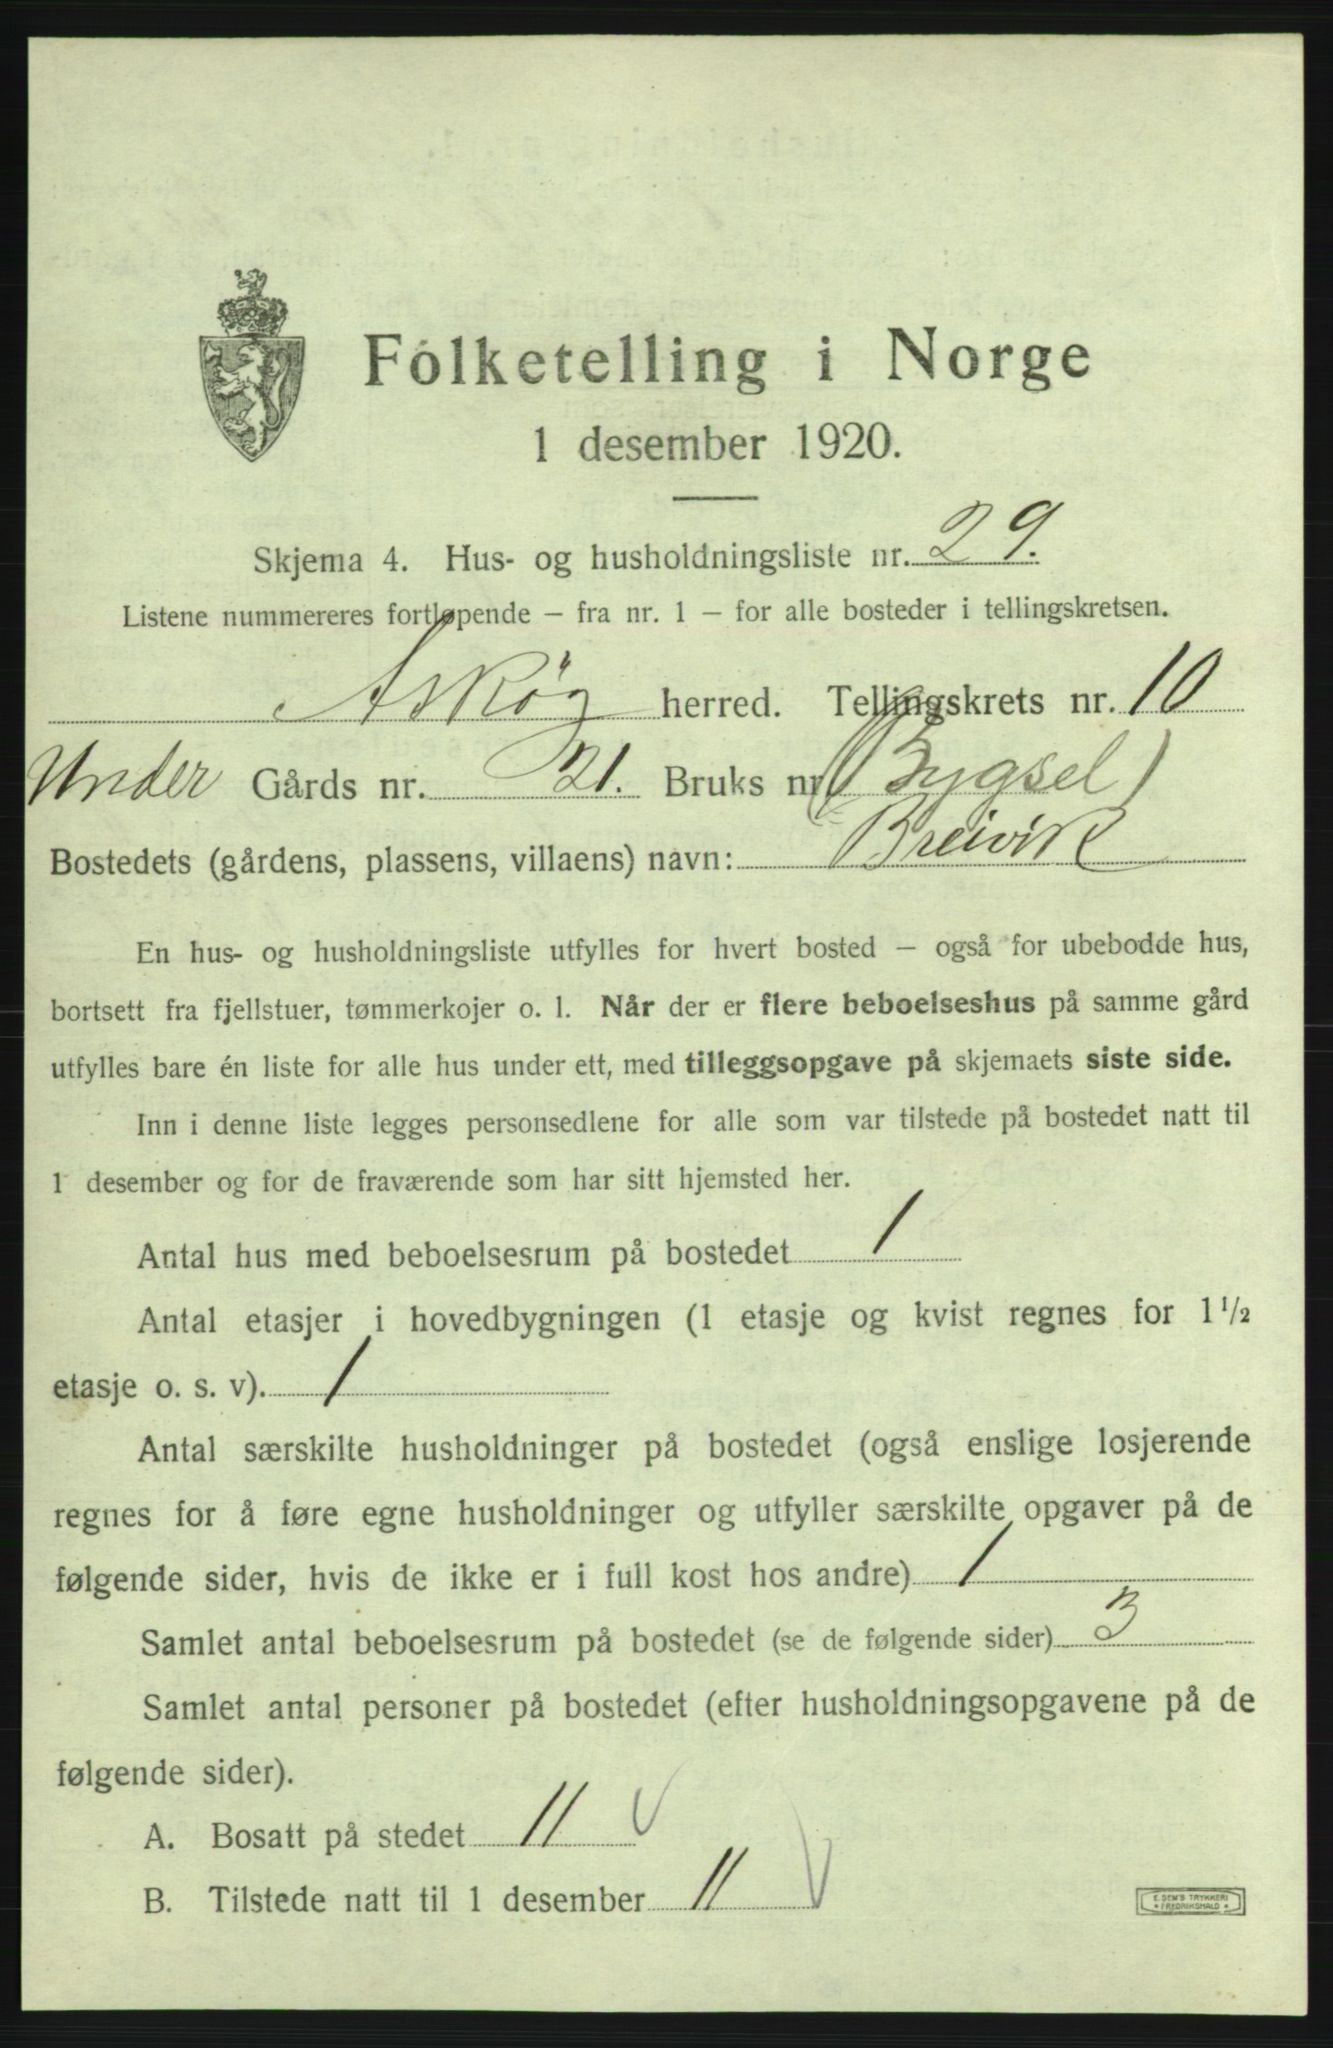 Folketelling i Norge
1 desember 1920.
Skjema 4. Hus- og husholdningsliste nr. 29.
Listene nummereres fortløpende – fra nr. 1 – for alle bosteder i tellingskretsen.
Askøy herred. Tellingskrets nr. 10
Under Gårds nr. 21. Bruks nr. (Bygsel)
Bostedets (gårdens, plassens, villaens) navn: Breivik
En hus- og husholdningsliste utfylles for hvert bosted – også for ubebodde hus,
bortsett fra fjellstuer, tømmerkojer o. l. Når der er flere beboelseshus på samme gård
utfylles bare én liste for alle hus under ett, med tilleggsopgave på skjemaets siste side.
Inn i denne liste legges personsedlene for alle som var tilstede på bostedet natt til
1 desember og for de fraværende som har sitt hjemsted her.
Antal hus med beboelsesrum på bostedet 1
Antal etasjer i hovedbygningen (1 etasje og kvist regnes for 1 1/2
etasje o. s. v). 1
Antal særskilte husholdninger på bostedet (også enslige losjerende
regnes for å føre egne husholdninger og utfyller særskilte opgaver på de
følgende sider, hvis de ikke er i full kost hos andre) 1
Samlet antal beboelsesrum på bostedet (se de følgende sider) 3
Samlet antal personer på bostedet (efter husholdningsopgavene på de
følgende sider).
A. Bosatt på stedet 11
B. Tilstede natt til 1 desember 11
E. SEM'S TRYKKERI
FREDRIKSHALD